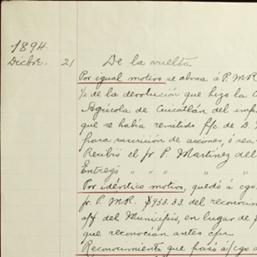 1894.
Dicbre. 21 De la vuelta
Por igual motivo se abona á P. M. R.
½ de la devolución que hizo la C
Agrícola de Cuicatlán del emp
que se había remitido p/c de D.
para suscrición de acciones, ó sea
Recibió el Sr P. Martinez del
Entregó " " "
Por idéntico motivo, quedó á cgo.
Sr. P. M. R. $933.33 del reconoci
a/f del Municipio, en lugar de
que reconocian antes
Reconocimiento que pasó á/cgo